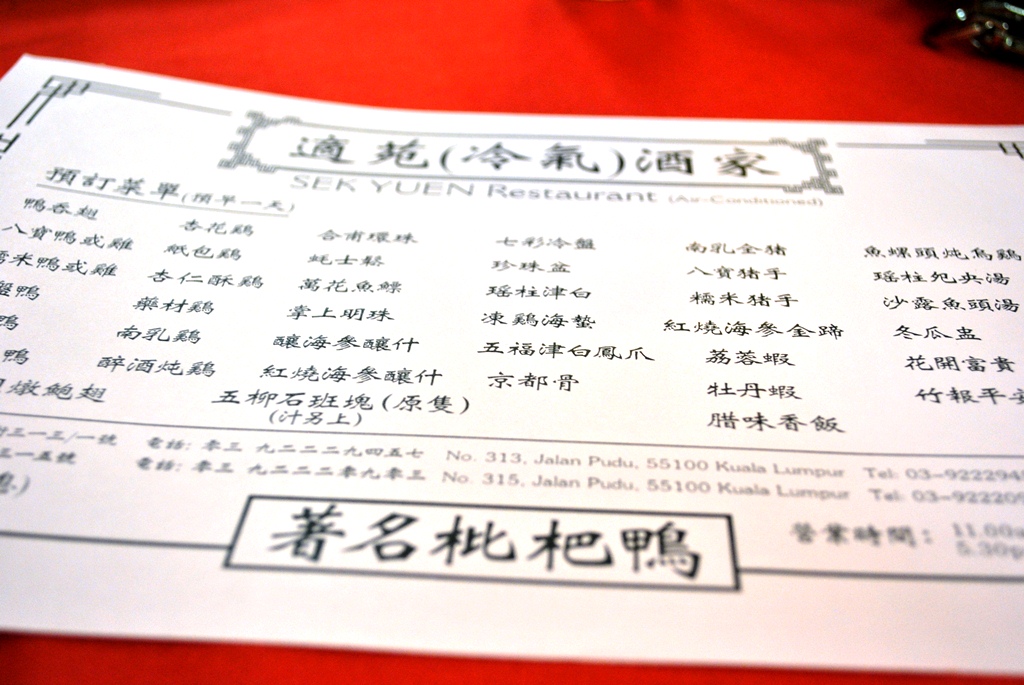 適苑(冷氣)酒家
SEK YUEN Restaurant (Air-Conditioned)
預訂菜單(預早一天)
鴨吞翅 杏花鷄 合甫環珠 七彩冷盤 南乳全猪 魚螺頭炖烏鷄
八寶鴨或雞 紙包鷄 蚝士鬆 珍珠盆 八寶猪手 瑶柱
米鴨或雞 杏仁酥鷄 萬花魚鰾 瑶柱津白 糯米猪手 沙露魚頭湯
鴨 藥材鷄 掌上明珠 凍鷄海蜇 紅燒海參金蹄 冬瓜盅
鴨 南乳鷄 釀海參釀什 五福津白鳳爪 荔蓉蝦 花開富貴
鴨 醉酒炖鷄 紅燒海參釀什 京都骨 牡丹蝦 竹報平
燉鮑翅 五柳石班塊(原隻) 腊味香飯
(汁另上)
三一三/一號 電話: 零三 九二二二九四五七 No. 313, Jalan Pudu, 55100 Kuala Lumpur Tel: 03-922294
三一五號 電話: 零三 九二二二零九零三 No. 315, Jalan Pudu, 55100 Kuala Lumpur Tel: 03-922209
著名枇杷鴨
營業時間: 11.00a
5.30p